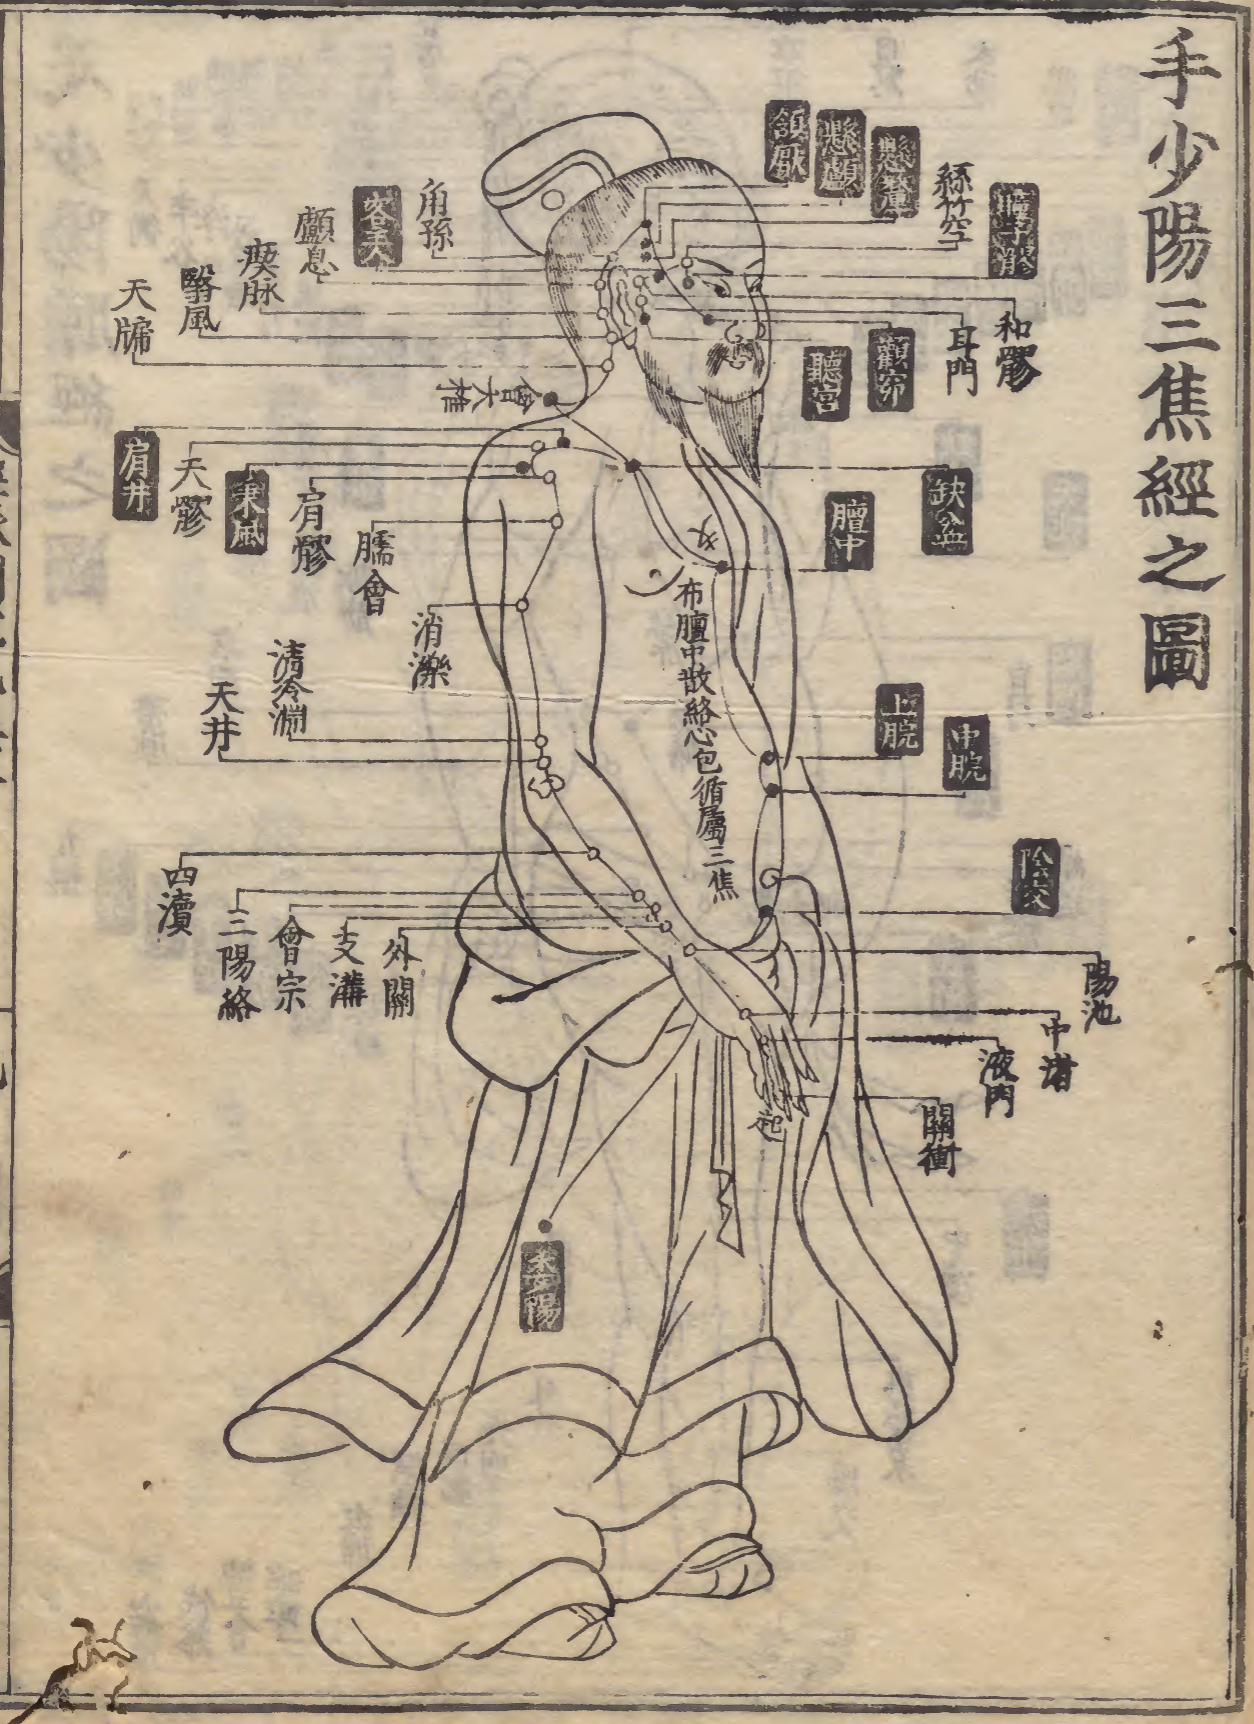 手少陽三焦經之圖
頷厭
懸顱
懸釐
絲竹空
瞳子髎
和髎
耳門
顴窌
聽宮
角孫
客主人
顱息
瘈脉
翳風
天牖
會大椎
肩井
天髎
秉風
肩髎
臑會
消濼
清冷淵
天井
缺盆
膻中
交
布膻中散絡心包循屬三焦
上脘
中脘
陰交
四瀆
三陽絡
會宗
支溝
外關
陽池
中渚
液門
關衝
起
委陽